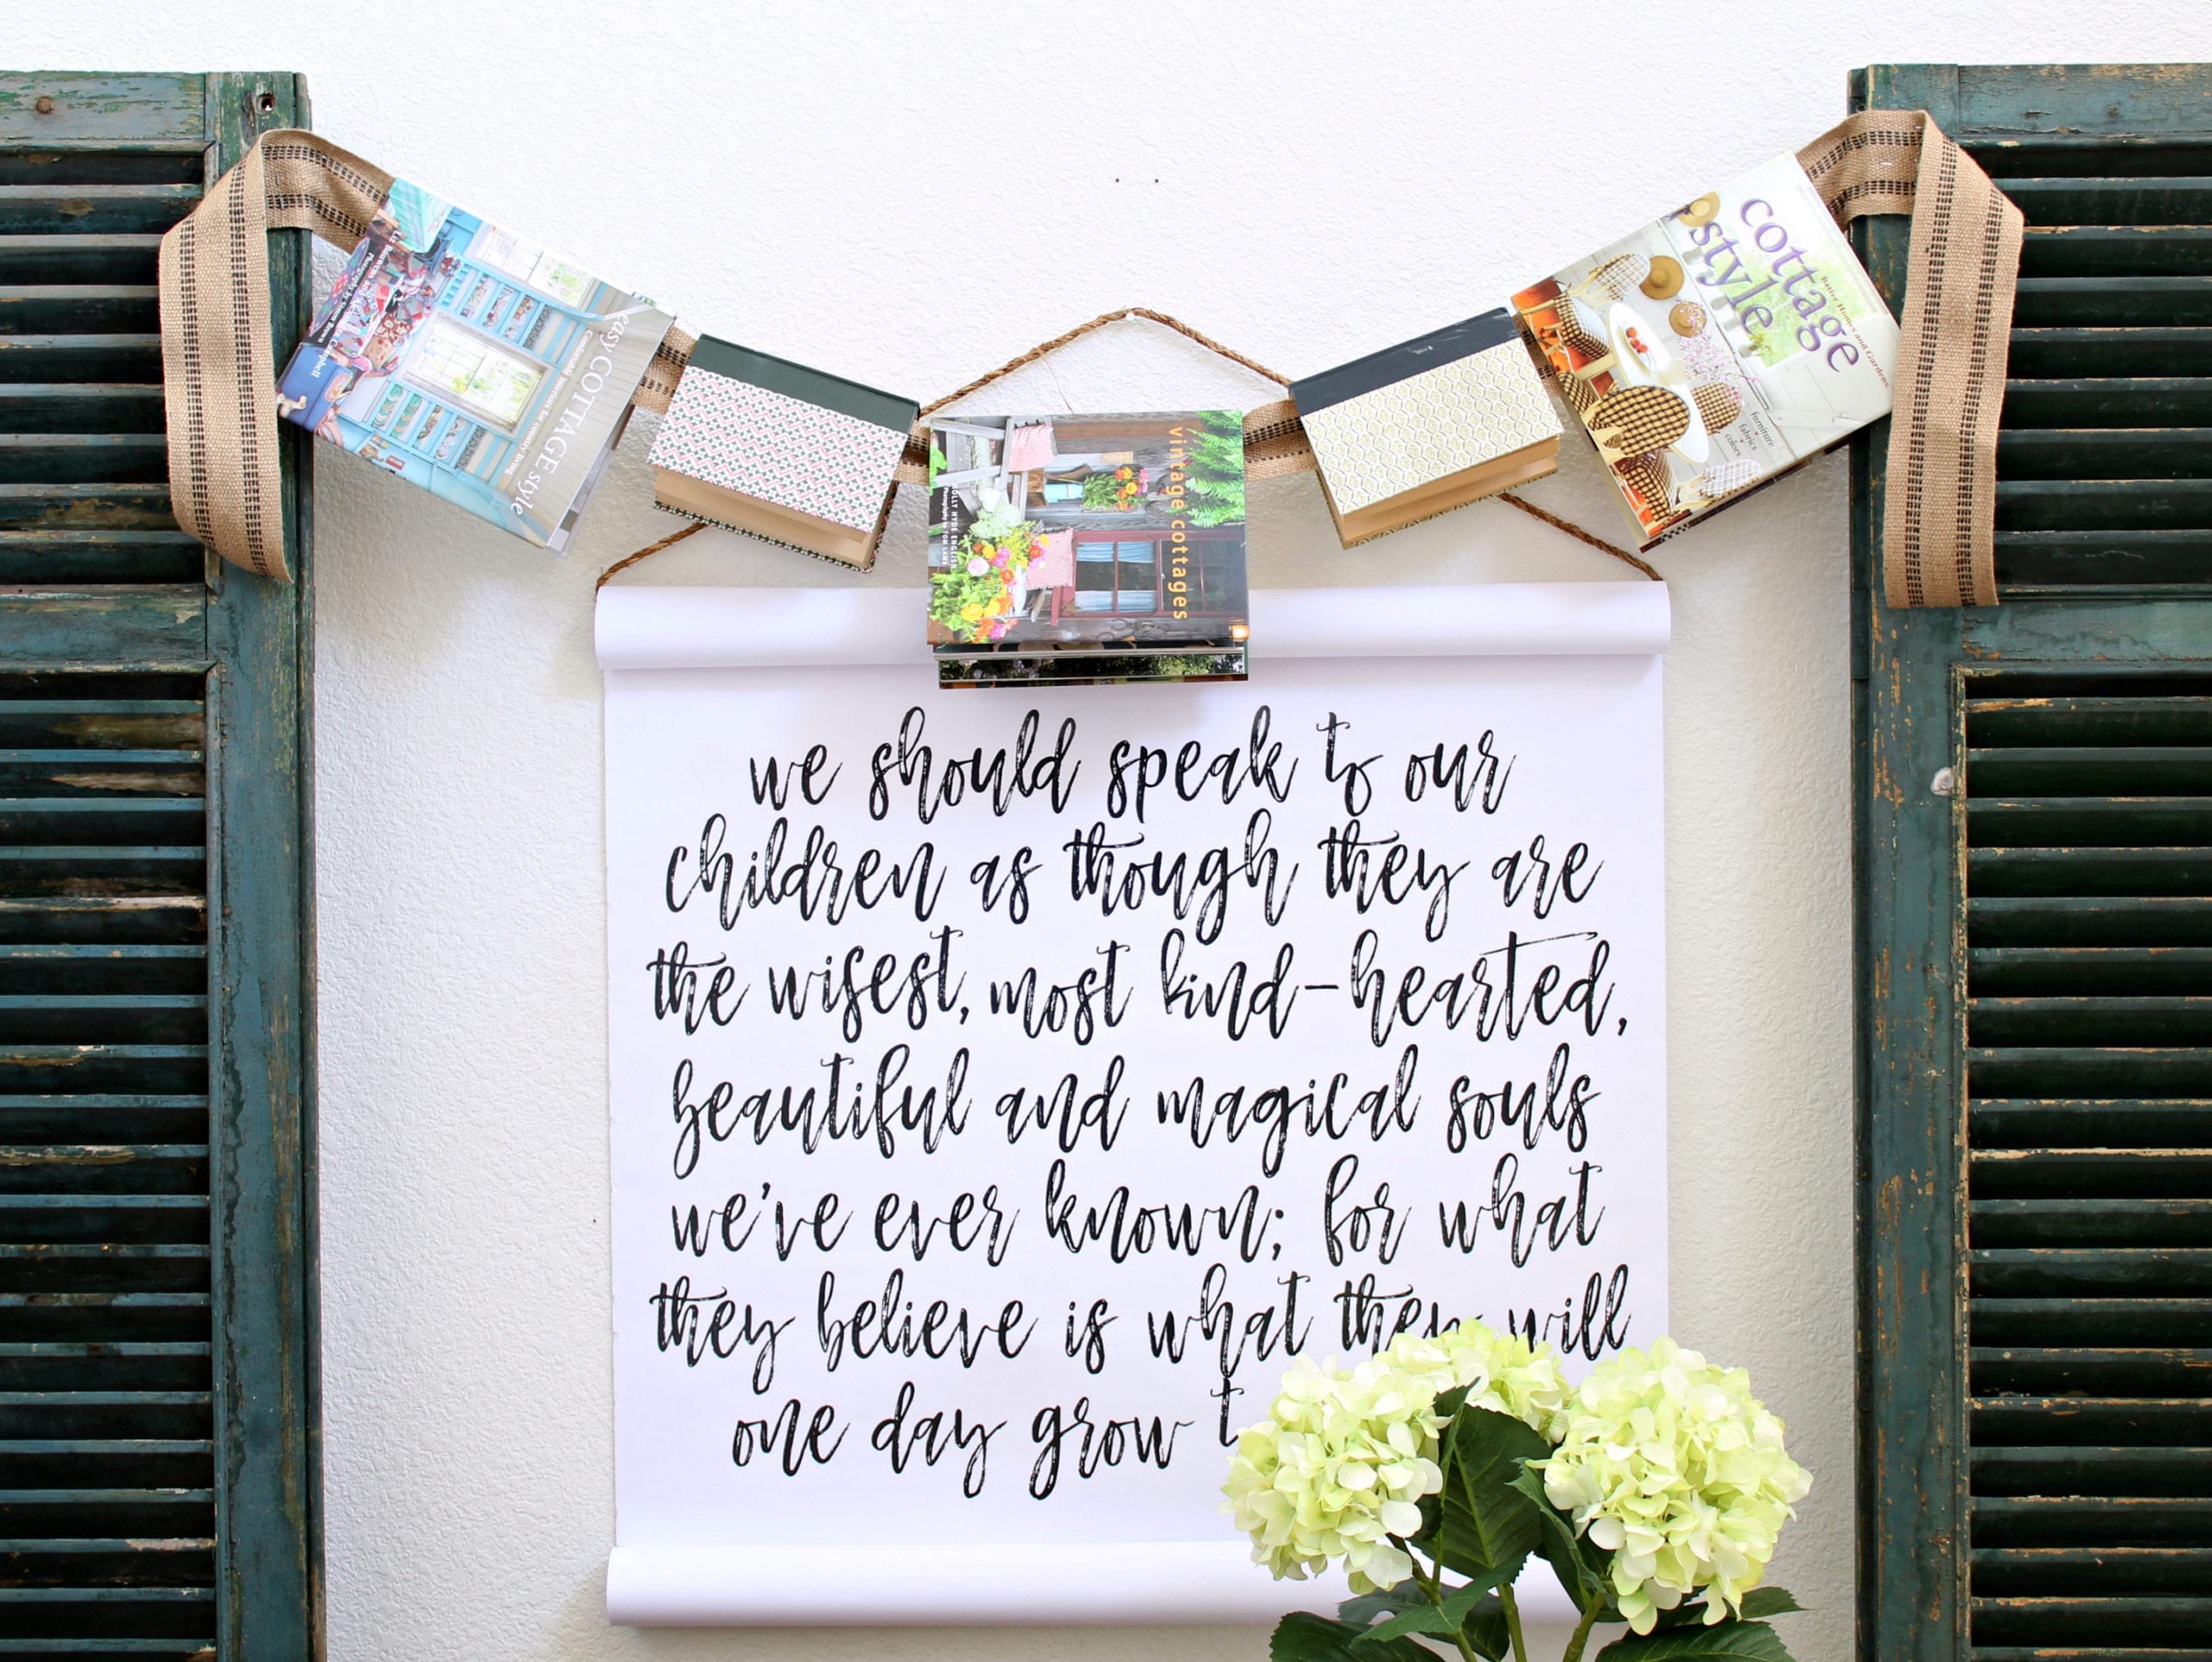 easy COTTAGE style
Comfortable interiors for country living
vintage cottages
MOLLY HYDE ENGLISH
cottage
style
Better Homes and Gardens
furniture
fabrics
colors
we should speak to our
children as though they are
the wisest, most kind-hearted,
beautiful and magical souls
we've ever known; for what
they believe is what they will
one day grow t